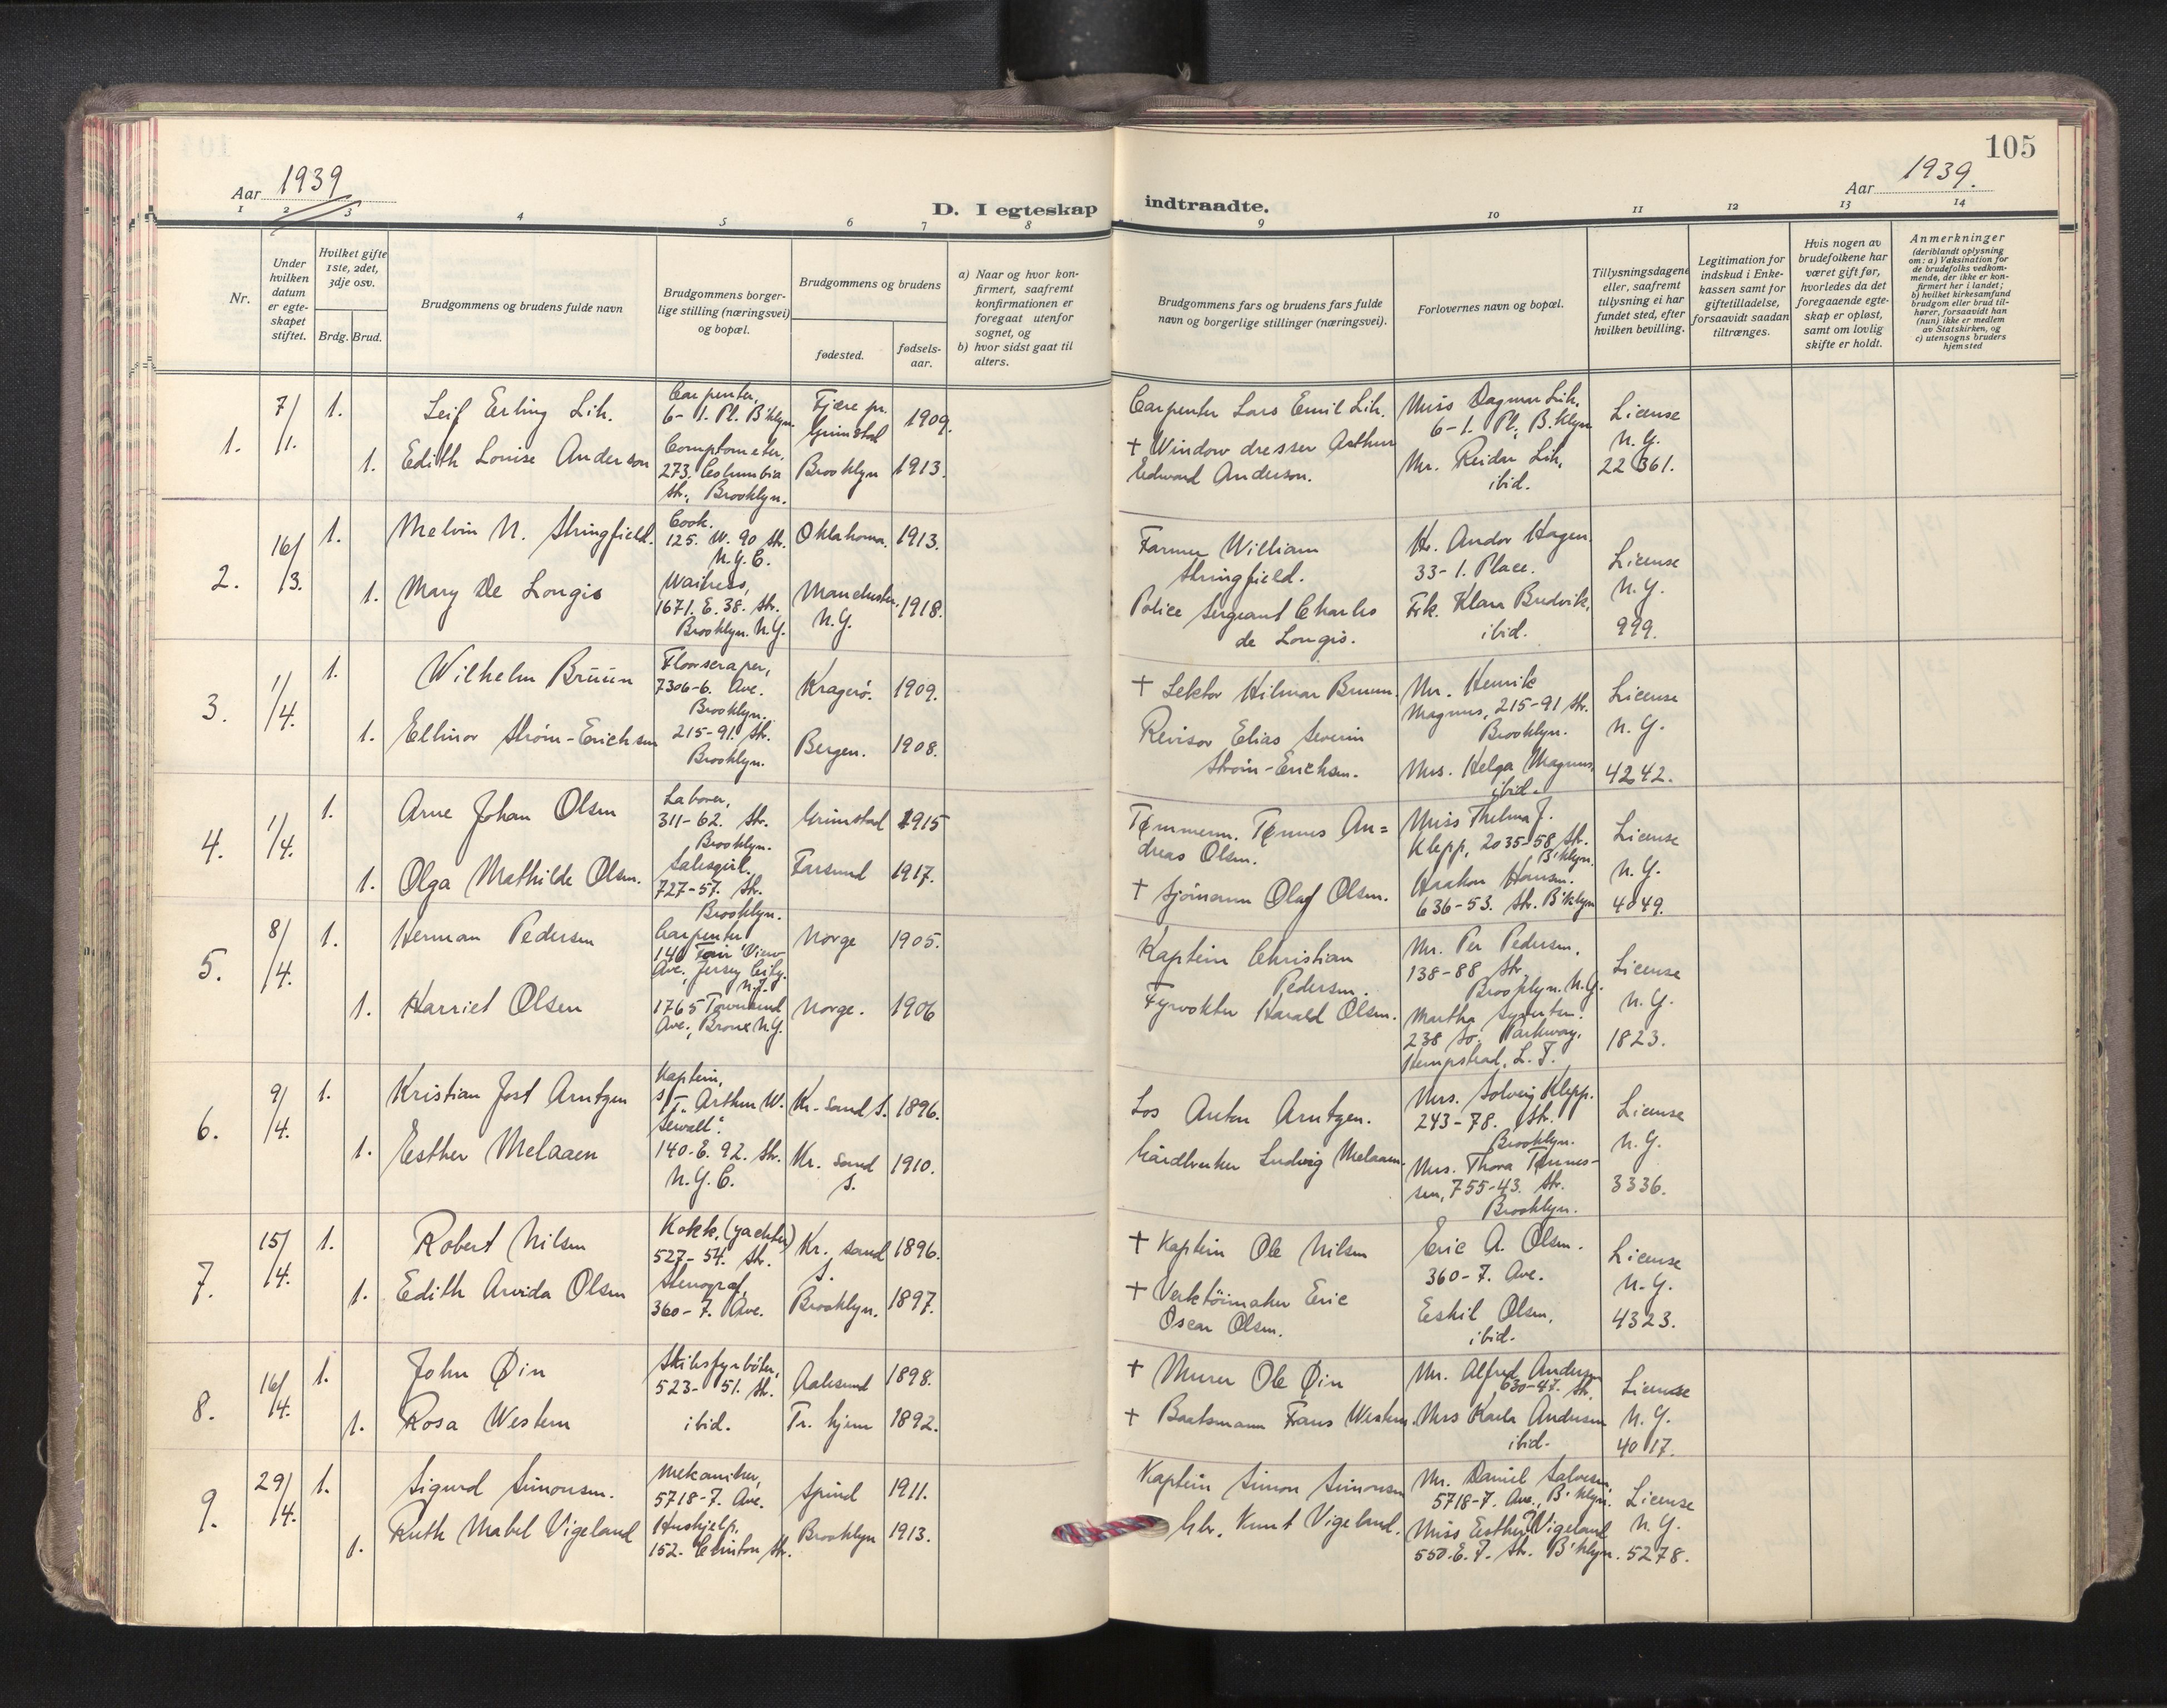 105
Aar 1939
Aar 1939.
D. I egteskap indtraadte.
1 2 3 4 5 6 7 8 9 10 11 12 13 14
Nr.
Under hvilken datum er egteskapet stiftet.
Hvilket gifte 1ste, 2det, 3dje osv.
Brdg. Brud.
Brudgommens og brudens fulde navn
Brudgommens borgerlige stilling (næringsvei) og bopæl.
Brudgommens og brudens
fødested.
fødselsaar.
a) Naar og hvor konfirmert, saafremt konfirmationen er foregaat utenfor sognet, og
b) hvor sidst gaat til alters.
Brudgommens fars og brudens fars fulde navn og borgerlige stillinger (næringsvei).
Forlovernes navn og bopæl.
Tillysningsdagene eller, saafremt tillysning ei har fundet sted, efter hvilken bevilling.
Legitimation for indskud i Enkekassen samt for giftetilladelse, forsaavidt saadan tiltrænges.
Hvis nogen av brudefolkene har været gift før, hvorledes da det foregaaende egteskap er opløst, samt om lovlig skifte er holdt.
Anmerkninger
(deriblandt oplysning om: a) Vaksination for de brudefolks vedkommende, der ikke er konfirmert her i landet;
b) hvilket kirkesamfund brudgom eller brud tilhører, forsaavidt han (hun) ikke er medlem av Statskirken, og
c) utensogns bruders hjemsted
1. 7/1. 1. Leif Erling Lih. Carpenter, 6-1. Pl. B'klyn Fjære pr. Grimstad 1909. Carpenter Lars Emil Lih. Miss Dagmar Lih, 6-1. Pl., B.klyn License N.Y. 22361.
1. Edith Louise Anderson Comptometer, 273. Columbia Str., Brooklyn. Brooklyn 1913. + Window dresser Arthur Edward Anderson. Mr. Reidar Lih, ibid.
2. 16/3. 1. Melvin N. Stringfield. Cook. 125. W. 90 Str. N.Y.C. Oklahoma. 1913. Farmer William Stringfield. Hr. Andor Hagen. 33-1. Place. License N.Y. 999.
1. Mary De Longis Waitress, 1671. E. 38. Str. Brooklyn. N.Y. Manchester. N.Y. 1918. Police Sergeant Charles de Longis. Frk. Klara Bredvik, ibid.
3. 1/4. 1. Wilhelm Bruun Floorscraper, 7306-6. Ave. Brooklyn. Kragerö. 1909. + Lektor Hilmar Bruun. Mr. Henrik Magnus, 215-91 Str. Brooklyn. License N.Y. 4242.
1. Ellinor Strøm-Erichsen 215-91. Str. Brooklyn. Bergen. 1908. Revisor Elias Severin Strøm-Erichsen. Mrs. Helga Magnus, ibid.
4. 1/4. 1. Arne Johan Olsen Laborer, 311-62. Str. Brooklyn. Grimstad 1915 Tømmerm. Tønnes Andreas Olsen. Miss Thelma J. Klepp, 2035-58 Str. B'klyn. License N.Y. 4049.
1. Olga Mathilde Olsen. Salesgirl. 727-57. Str. Brooklyn. Farsund 1917. + Sjömann Olaf Olsen. Haakon Hansen. 636-53. Str. B'klyn
5. 8/4. 1. Herman Pedersen Carpenter 140 Fair View Ave, Jersey City. N.J. Norge 1905. Kaptein Christian Pedersen. Mr. Per Pedersen, 138-88 Str. Brooklyn. N.Y. License N.Y. 1823.
1. Harriet Olsen 1765 Townsend Ave., Bronx N.Y. Norge. 1906 Fyrvokter Harald Olsen. Martha 238 So. Parkway, Hempstead, L. I.
6. 9/4. 1. Kristian Jost Arntzen Kaptein, S/T. Arthur W. Sewall". Kr.-sand S. 1896. Los Anton Arntzen. Mrs. Solveig Klepp. 243-78. Str. Brooklyn. License N.Y. 3336.
1. Esther Melaaen 140-E. 92. Str. N.Y.C. Kr. sand S. 1910. Gårdbruker Ludvig Melaaen. Mrs. Thora Tønnessen, 755-43. Str. Brooklyn.
7. 15/4. 1. Robert Nilsen Kokk, (yachter) 527-54. Str. Kr. sand S. 1896. + Kaptein Ole Nilsen Eric A. Olsen. 360-7. Ave. License N.Y. 4323.
1. Edith Arvida Olsen Stenograf, 360-7. Ave. Brooklyn. 1897. + Verktöimaker Eric Oscar Olsen. Eskil Olsen, ibid.
8. 16/4. 1. John Øin Skibsfyrbøter, 523-51. Str. Aalesund 1898. + Murer Ole Øin Mr. Alfred Andersen 630-47. Str. License N.Y. 4017.
1. Rosa Western ibid. Tr. hjem 1892. + Baatsmann Frans Western. Mrs Karla Andersen ibid.
9. 29/4. 1. Sigurd Simonsen. Mekaniker, 5718-7. Ave. Spind 1911. Kaptein Simon Simonsen Mr. Daniel Salvesen, 5718-7. Ave., B'klyn. License N.Y. 5278.
1. Ruth Mabel Vigeland Hushjelp. 152. Clinton Str. Brooklyn 1913. Gbr. Knut Vigeland. Miss Esther Vigeland 550-E. 7. Str. B'klyn.